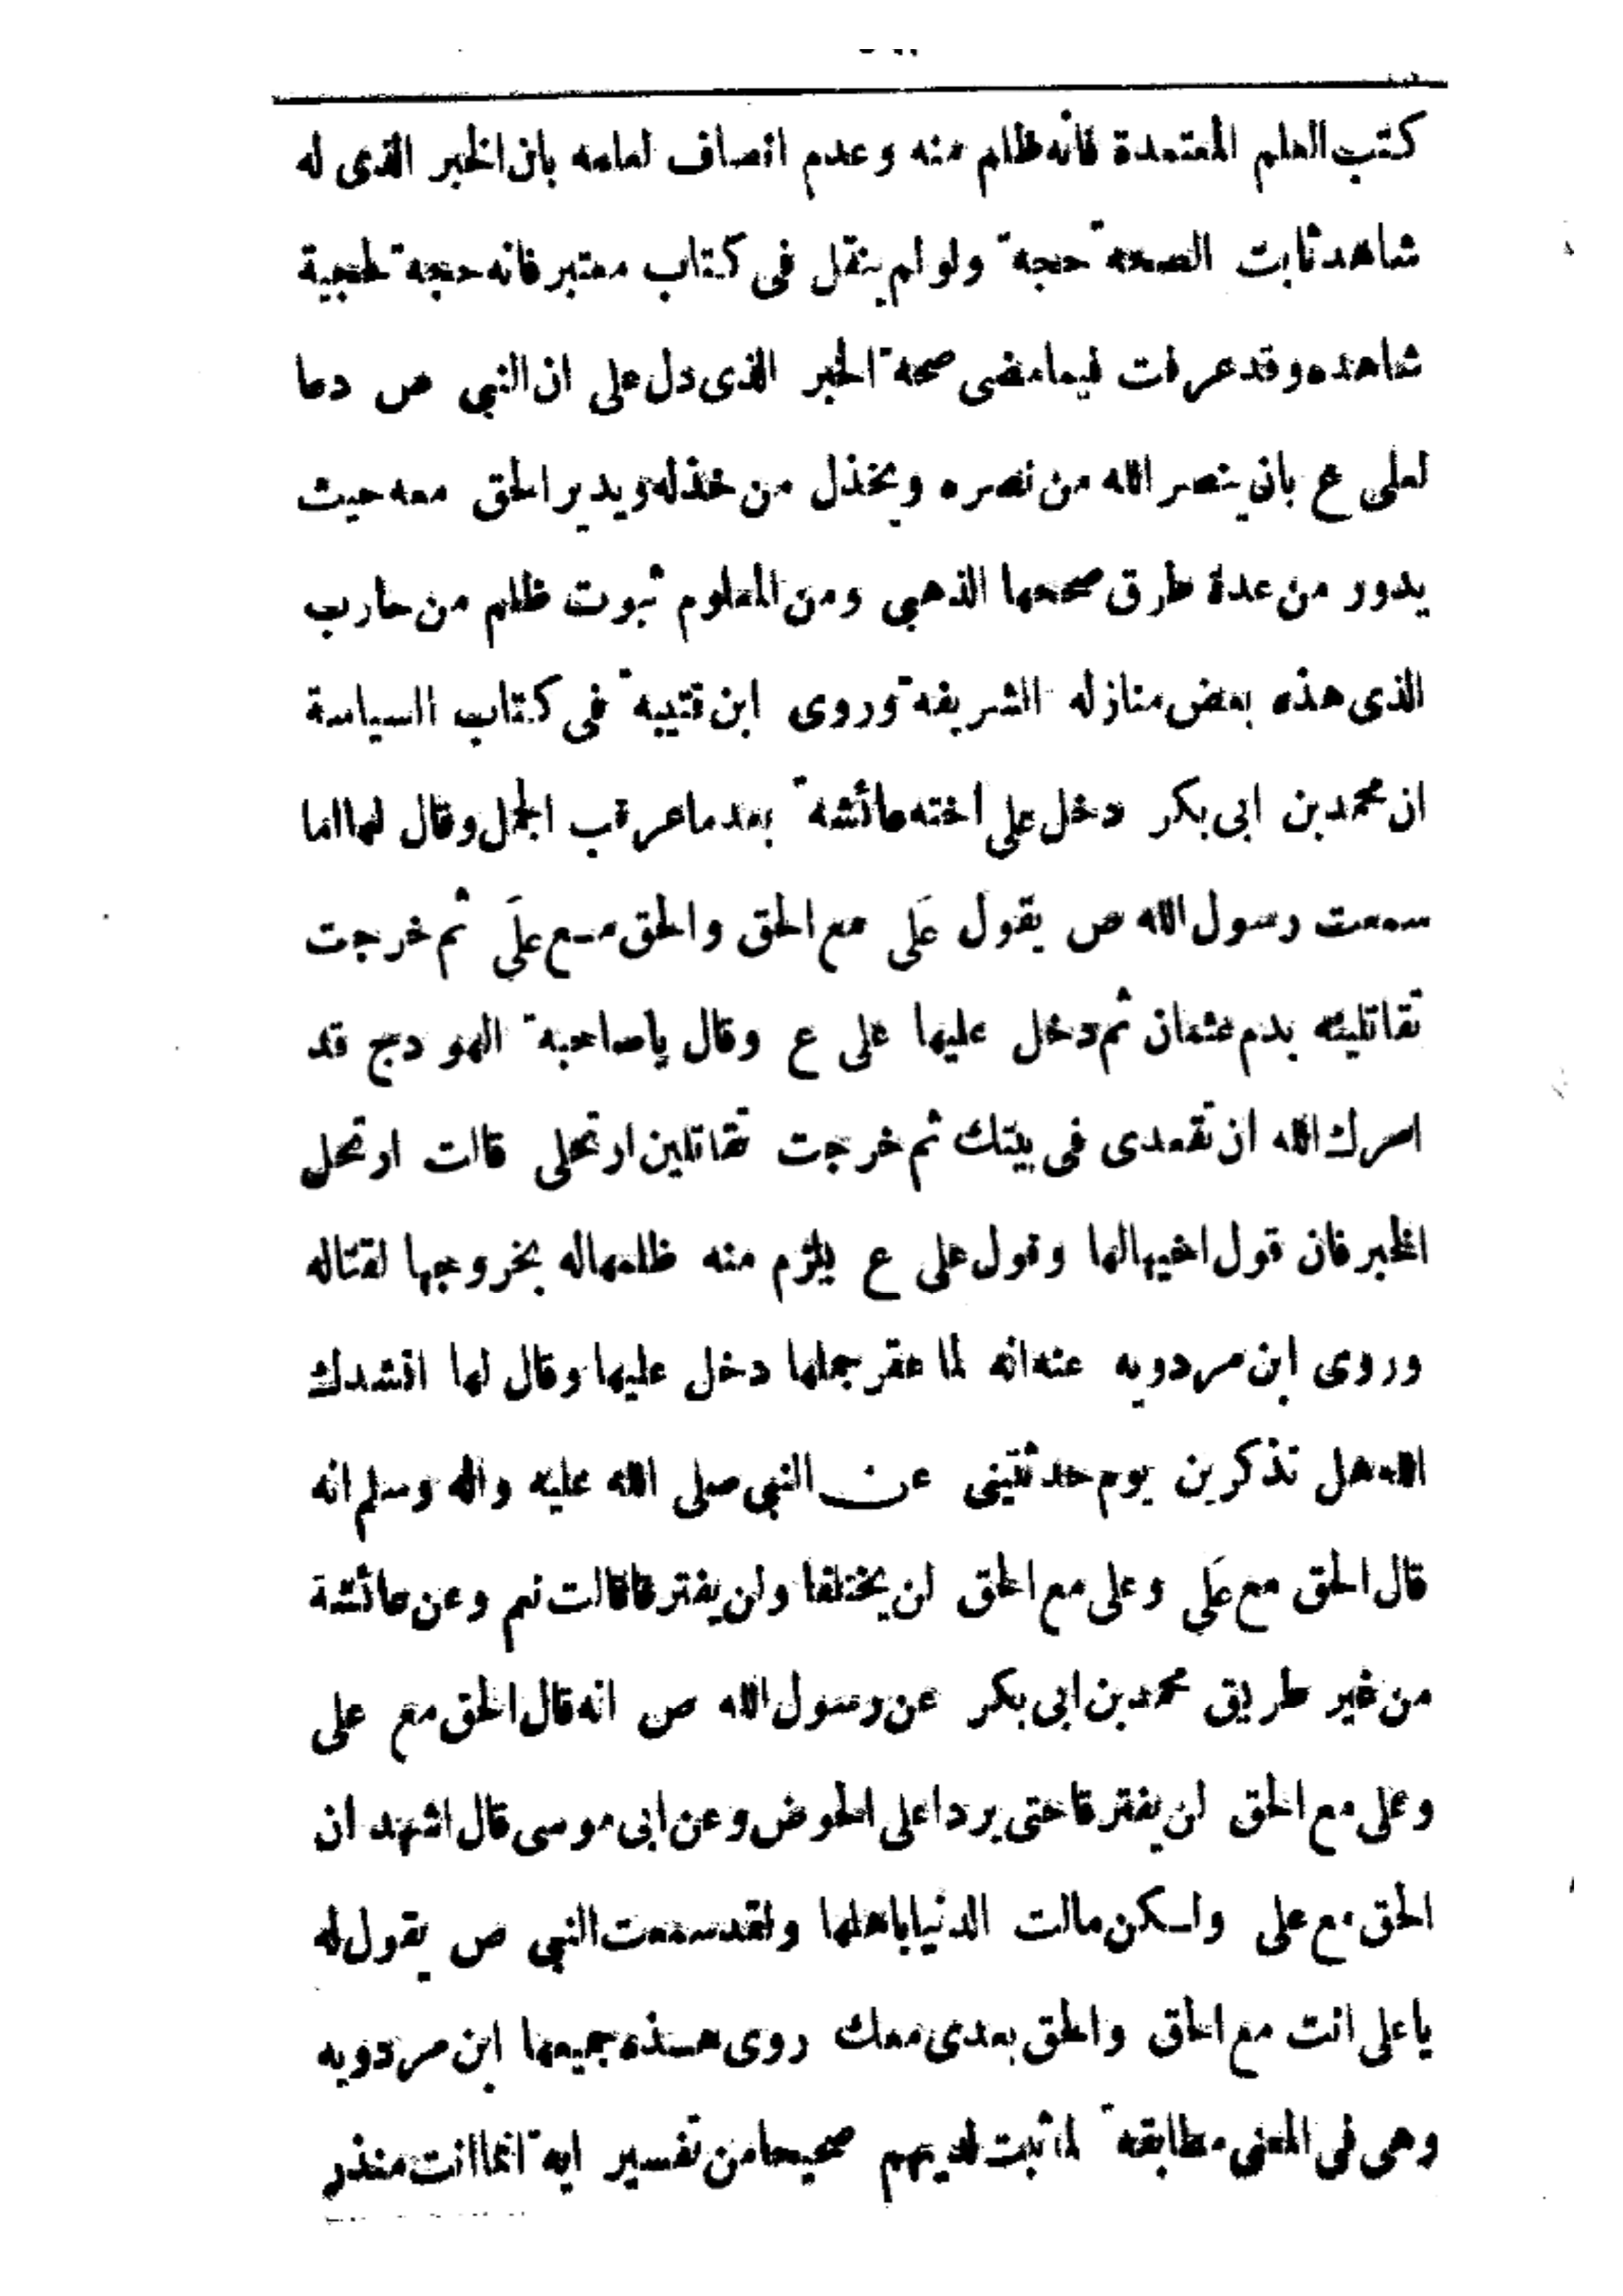 كتب العلم المعتمدة فانه ظلم منه وعدم انصاف لعلمه بان الخبر الذى له
شاهد ثابت الصحة حجة ولو لم ينقل فى كتاب معتبر فانه حجة لحجية
شاهده وقد عرفت فيما مضى صحة الخبر الذى دل على ان النبي ص دعا
لعلى ع بان ينصر الله من نصره ويخذل من خذله ويدير الحق معه حيث
يدور من عدة طرق صححها الذهبي ومن المعلوم ثبوت ظلم من حارب
الذى هذه بعض منازله الشريفة وروى ابن قتيبة فى كتاب السياسة
ان محمد بن ابى بكر دخل على اخته عائشة بعد ما عرقب الجمل وقال لها اما
سمعت رسول الله ص يقول على مع الحق والحق مع على ثم خرجت
تقاتلينه بدم عثمان ثم دخل عليها على ع وقال ياصاحبة الهودج قد
امرك الله ان تقعدى فى بيتك ثم خرجت تقاتلين ارتحلى قالت ارتحل
الخبر فان قول اخيها لها وقول على ع يلزم منه ظلمها له بخروجها لقتاله
وروى ابن مردويه عنه انه لما عقر جملها دخل عليها وقال لها انشدك
الله هل تذكرين يوم حدثتينى عن النبي صلى الله عليه واله وسلم انه
قال الحق مع على وعلى مع الحق لن يختلفا ولن يفترقا قالت نعم وعن عائشة
من غير طريق محمد بن ابى بكر عن رسول الله ص انه قال الحق مع على
وعلى مع الحق لن يفترقا حتى يردا على الحوض وعن ابى موسى قال اشهد ان
الحق مع على ولسكن مالت الدنيا باهلها ولقد سمعت النبي ص يقول له
ياعلى انت مع الحق والحق بعدى معك روى هذه جميعها ابن مردويه
وهى فى المعنى مطابقة لما ثبت لديهم صحيحا من تفسير اية انما انت منذر